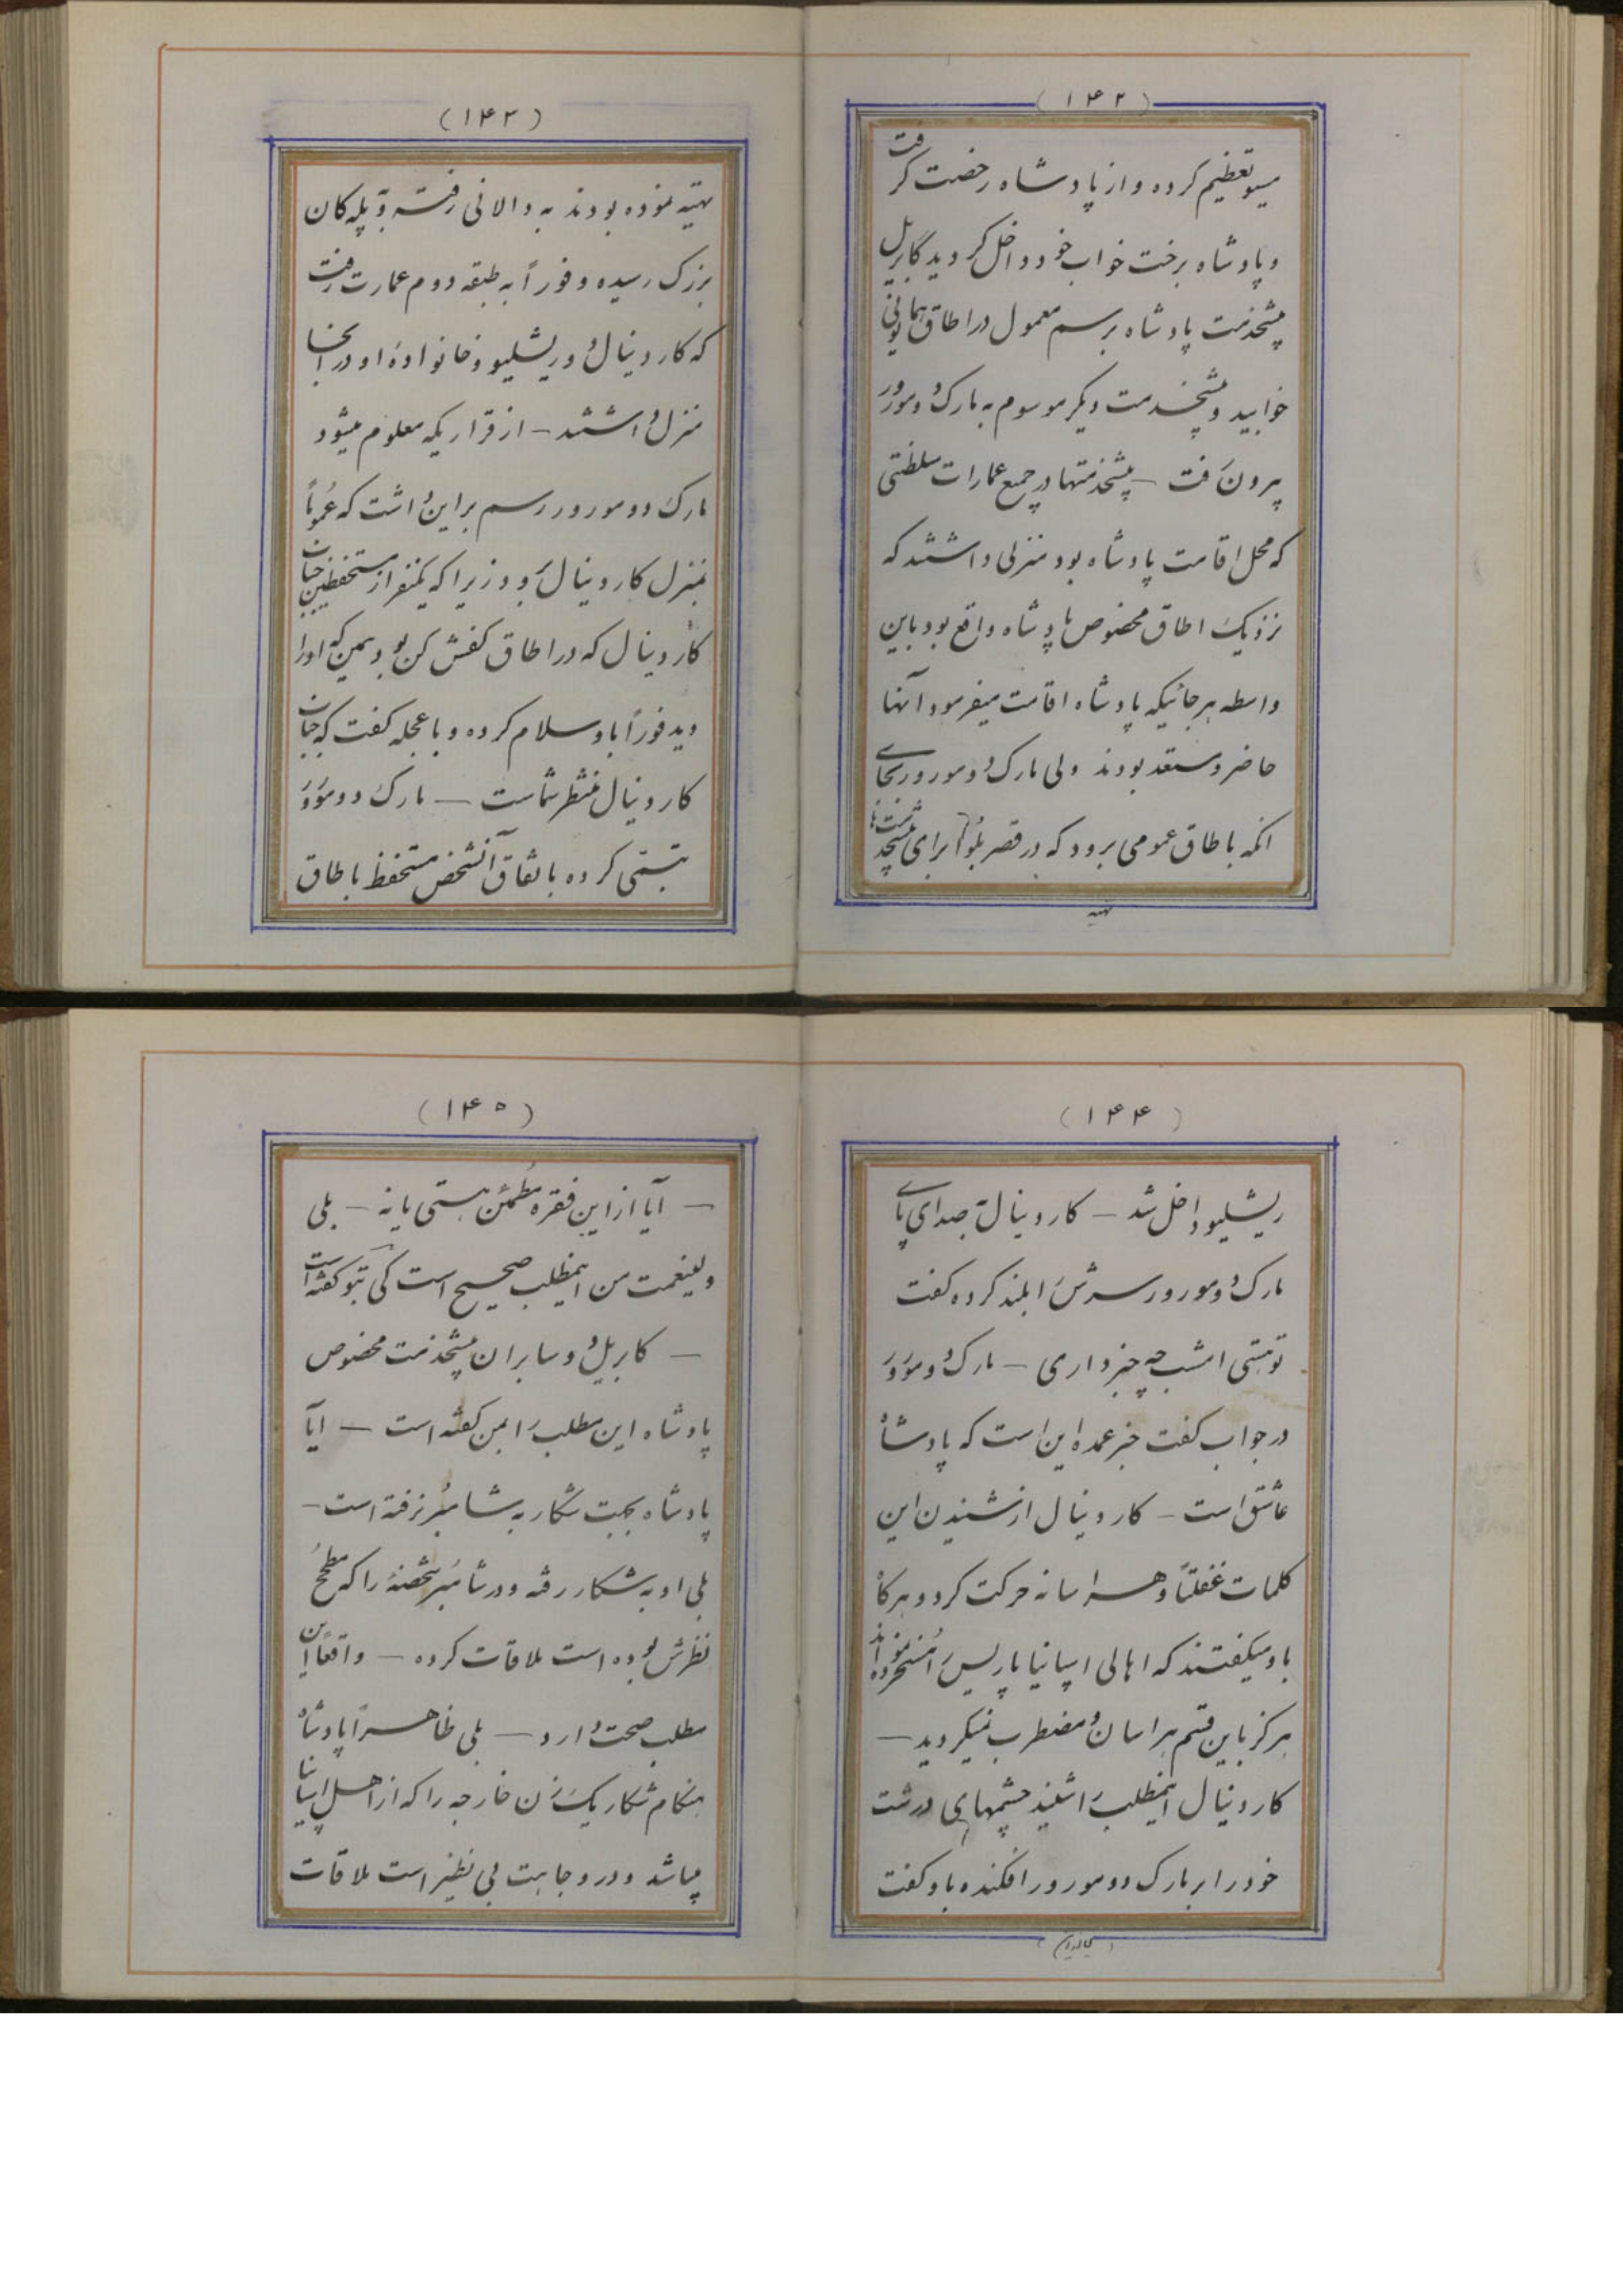 (۱۴۲)
مسیو تعظیم کرده و از پادشاه رخصت گرفت
و پادشاه برخت خواب خود داخل گردید گابریل
پیشخدمت پادشاه برسم معمول در اطاق همایونی
خوابید و پیشخدمت دیگر موسوم به مارک دومورور
بیرون رفت – پیشخدمتها در جمیع عمارات سلطنتی
که محل اقامت پادشاه بود منزلی داشتند که
نزدیک اطاق مخصوص پادشاه واقع بود باین
واسطه هر جائیکه پادشاه اقامت میفرمود آنها
حاضر و مستعد بودند ولی مارک دومورور بجای
انکه باطاق عمومی برود که در قصر بلوا برای پیشخدمت‌ها
تهیه
(۱۴۳)
تهیه نموده بودند به دالانی رفته و به پله کان
بزرک رسیده و فوراً به طبقه دوم عمارت رفت
که کاردینال دو ریشلیو و خانواده او در آنجا
منزل داشتند – از قراریکه معلوم میشود
مارک دومورور رسم بر این داشت که عموماً
بمنزل کاردینال رود زیرا که یکنفر از مستحفظین جناب
کاردینال که در اطاق کفش کن بود همین که اورا
دید فوراً باو سلام کرده و با عجله کفت که جناب
کاردینال منتظر شماست – مارک دومورور
تبسمی کرده باتفاق آنشخص مستحفظ باطاق
(۱۴۴)
ریشلیو داخل شد – کاردینال بصدای پای
مارک دومورور سرش را بلند کرده کفت
تو هستی امشب چه خبر داری – مارک دومورور
در جواب کفت خبر عمده این است که پادشاه
عاشق است – کاردینال از شنیدن این
کلمات غفلتاً و هراسانه حرکت کرد و هرکاه
باو میکفتند که اهالی اسپانیا پاریس را مسخر نموده‌اند
هرکز باین قسم هراسان و مضطرب نمیکردید –
کاردینال اینمطلب را شنید چشمهای درشت
خود را بر مارک دومورور افکنده باو کفت
(۱۴۵)
– آیا از این فقره مطمئن هستی یا نه – بلی
ولینعمت من اینمطلب صحیح است کی بتو کفته است
– کابریل دوسابران پیشخدمت مخصوص
پادشاه این مطلب را بمن کفته است – آیا
پادشاه بجهت شکار به شامبر نرفته است –
بلی او به شکار رفته و در شامبر شخصی را که مطمح
نظرش بوده است ملاقات کرده – واقعاً این
مطلب صحت دارد – بلی ظاهراً پادشاه
هنکام شکار یک زن خارجه را که از اهل اسپانیا
میباشد و در وجاهت بی نظیر است ملاقات